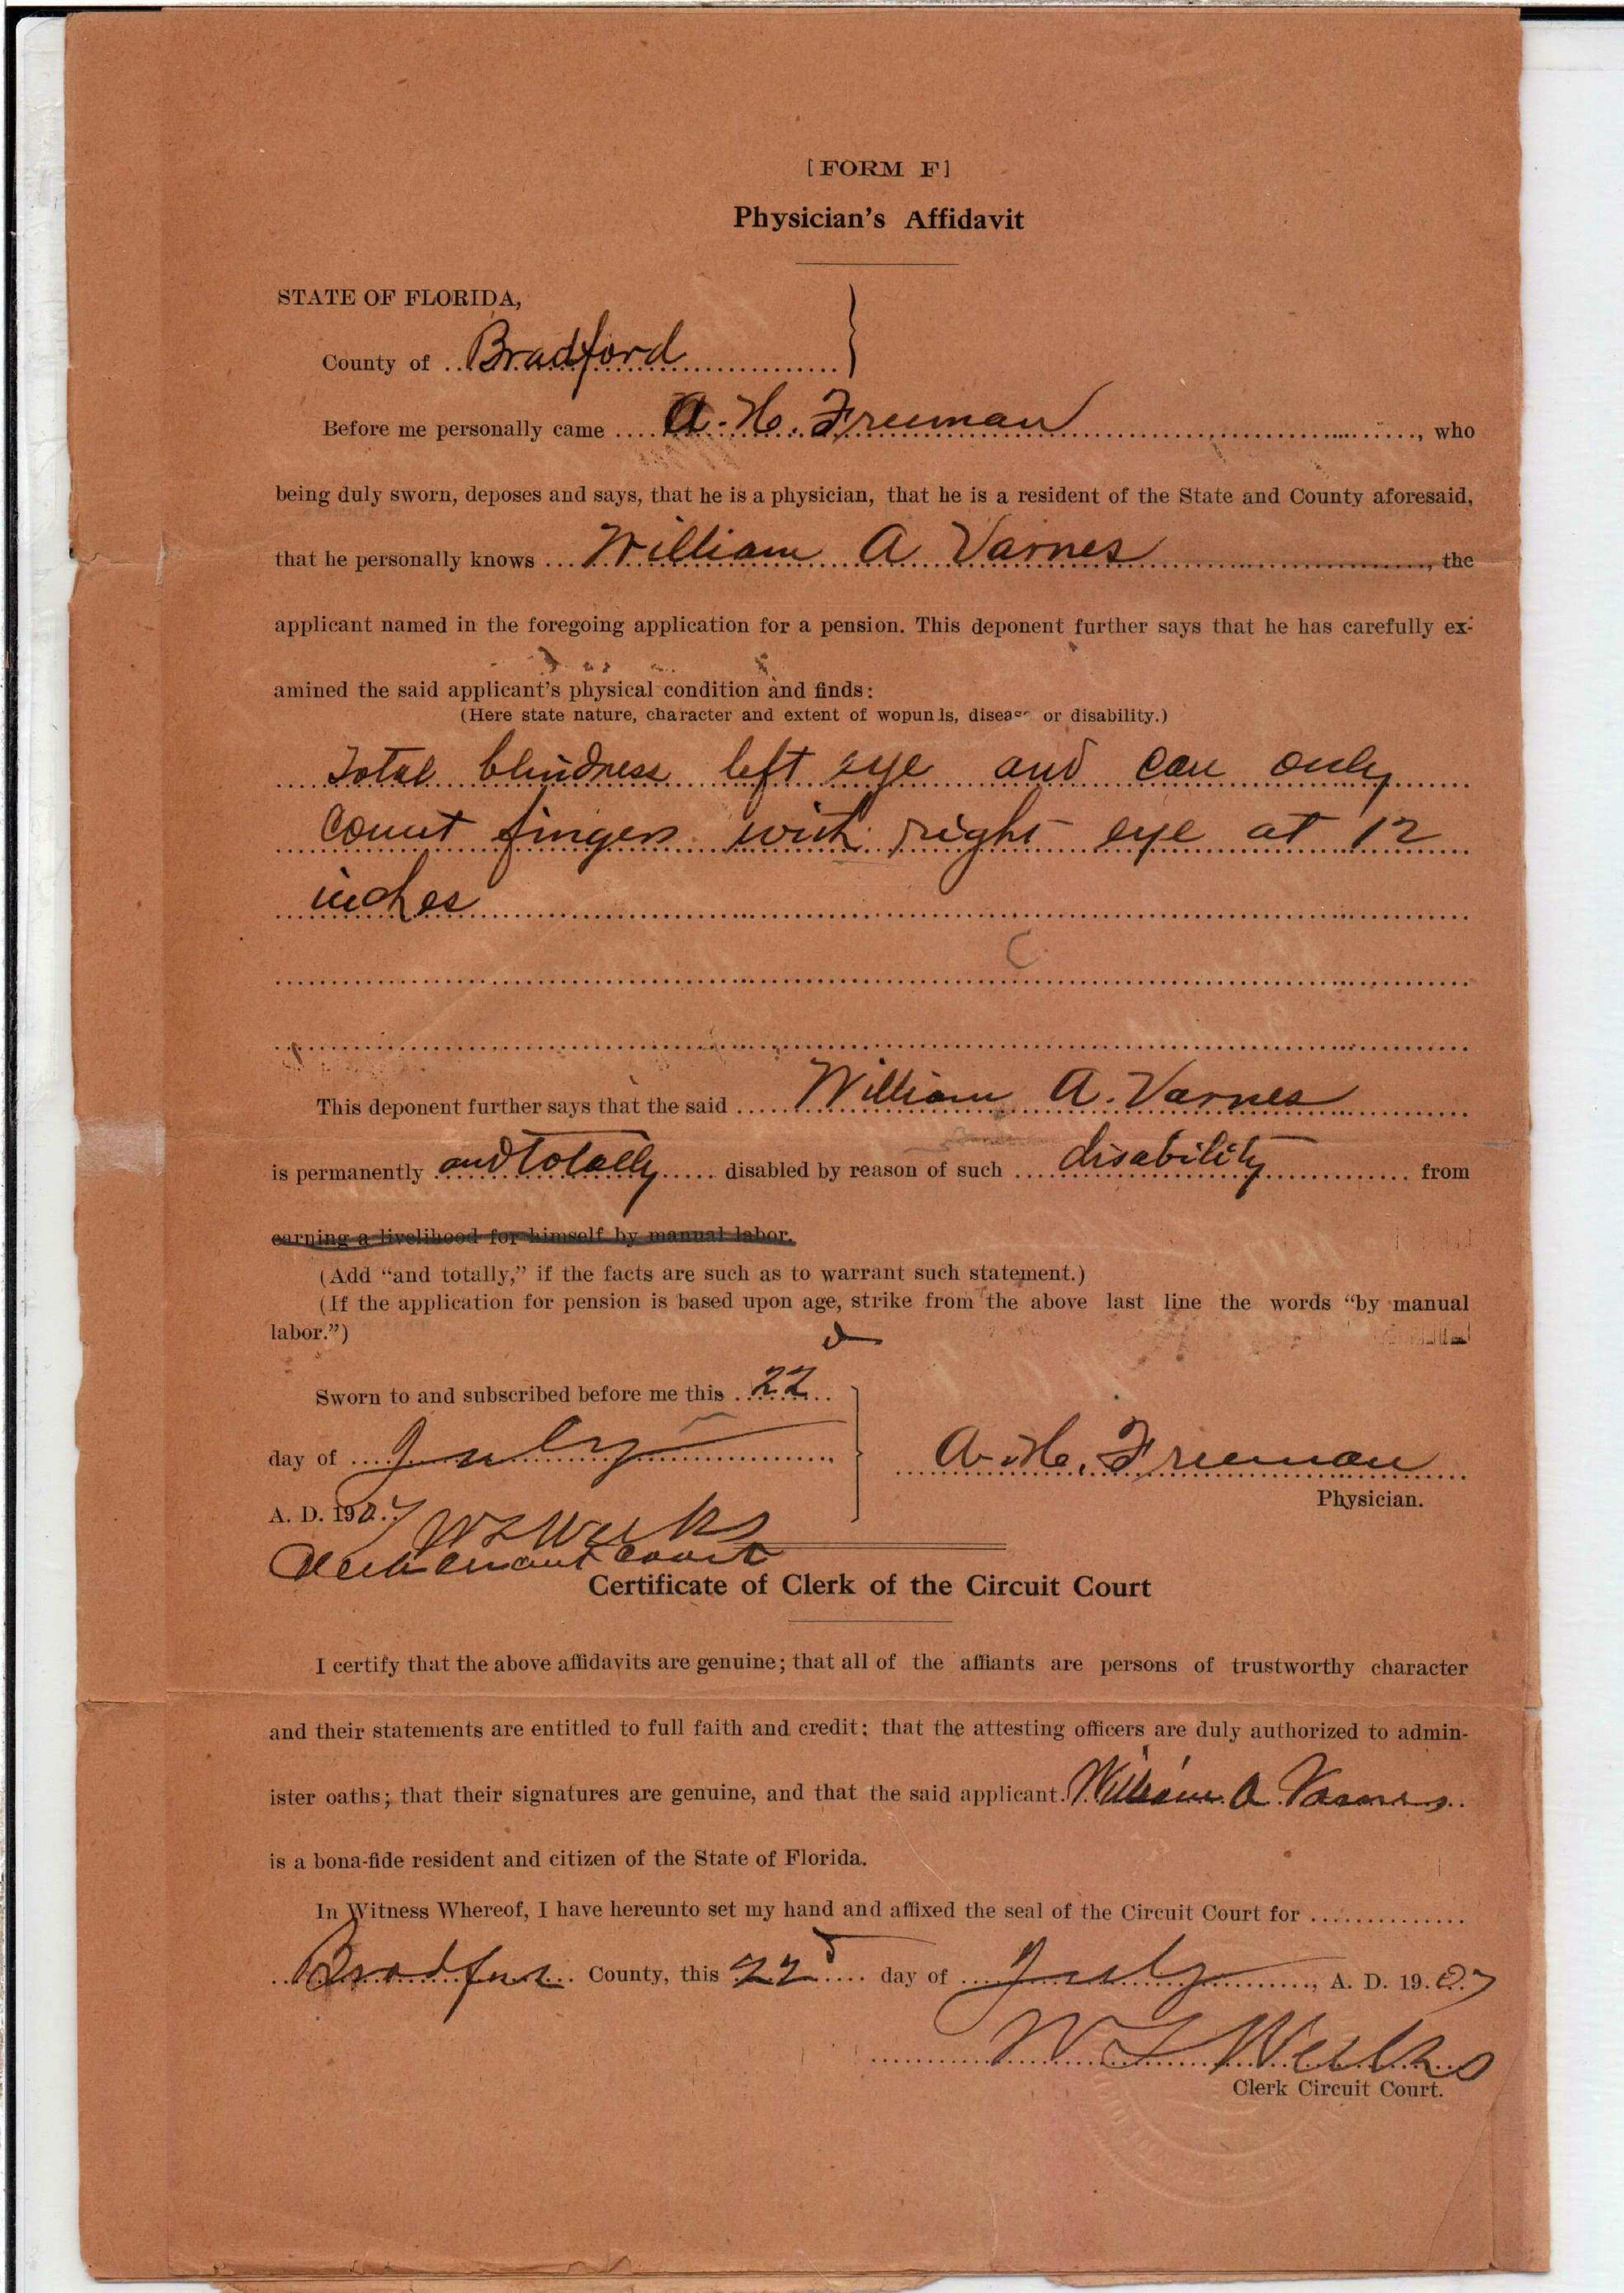 [FORM F]
Physician's Affidavit
STATE OF FLORIDA,
County of Bradford
Before me personally came A. H. Freeman, who
being duly sworn, deposes and says, that he is a physician, that he is a resident of the State and County aforesaid,
that he personally knows William A Varnes, the
applicant named in the foregoing application for a pension. This deponent further says that he has carefully ex-
amined the said applicant's physical condition and finds:
(Here state nature, character and extent of wopunls, disease or disability.)
Total blindness left eye and can only
count fingers with right eye at 12
inches
This deponent further says that the said William A. Varnes
is permanently and totally disabled by reason of such disability from
earning a livelihood for himself by manual labor.
(Add "and totally," if the facts are such as to warrant such statement.)
(If the application for pension is based upon age, strike from the above last line the words "by manual
labor.")
Sworn to and subscribed before me this 22d
day of July
A. H. Freeman
Physician.
A. D. 1907
W L Weeks
Clerk Court
Certificate of Clerk of the Circuit Court
I certify that the above affidavits are genuine; that all of the affiants are persons of trustworthy character
and their statements are entitled to full faith and credit; that the attesting officers are duly authorized to admin-
ister oaths; that their signatures are genuine, and that the said applicant William A Varnes
is a bona-fide resident and citizen of the State of Florida.
In Witness Whereof, I have hereunto set my hand and affixed the seal of the Circuit Court for
Bradford County, this 22d day of July, A. D. 1907
W L Weeks
Clerk Circuit Court.